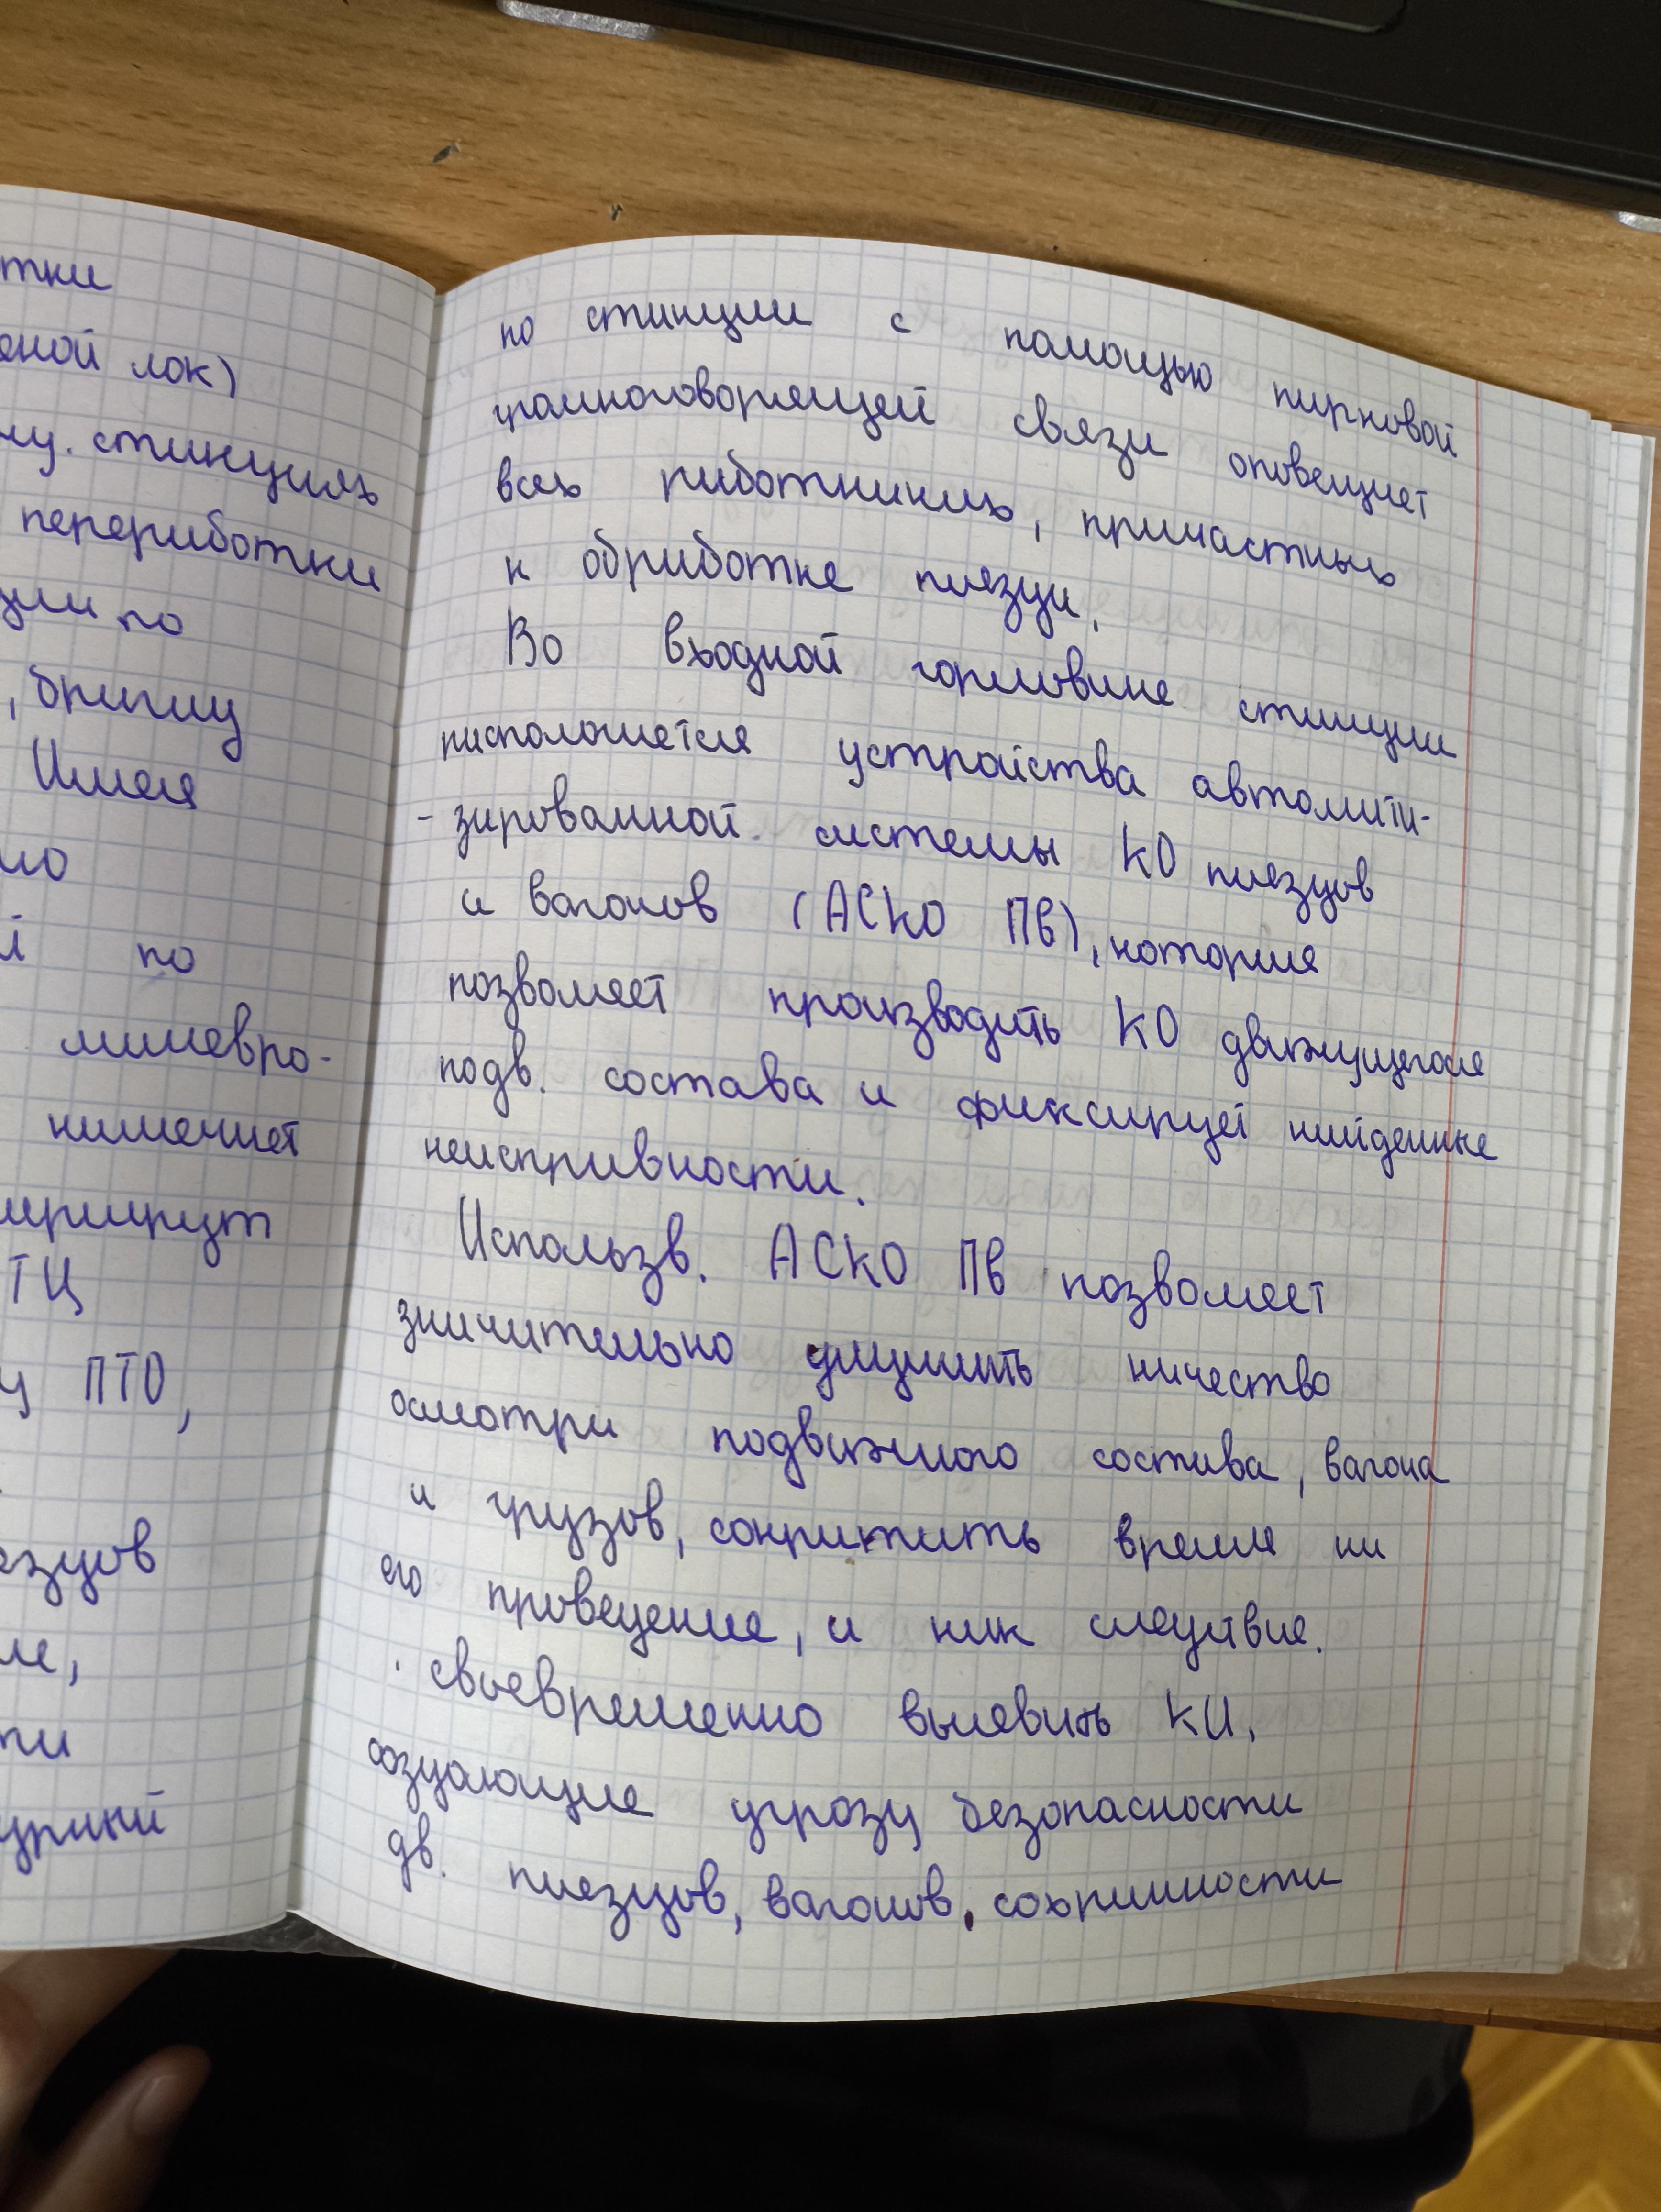 тки
еной лок)
му. станциях
переработки
ции по
, бригад
Имея
но
й по
маневро-
намечает
маршрут
ТЦ
у ПТО,
ездов
ле,
ти
урный
по станции с помощью парковой
громкоговорящей связи оповещает
всех работников, причастных
к обработке поезда.
Во входной горловине станции
располагается устройства автомати-
-зированной системы КО поездов
и вагонов (АСКО ПВ), которая
позволяет производить КО движущегося
подв. состава и фиксирует найденные
неисправности.
Использв. АСКО ПВ позволяет
значительно улучшить качество
осмотра подвижного состава, вагона
и грузов, сократить время на
его проведение, и как следствие.
своевременно выявить КН,
создающие угрозу безопасности
дв. поездов, вагонов, сохранности